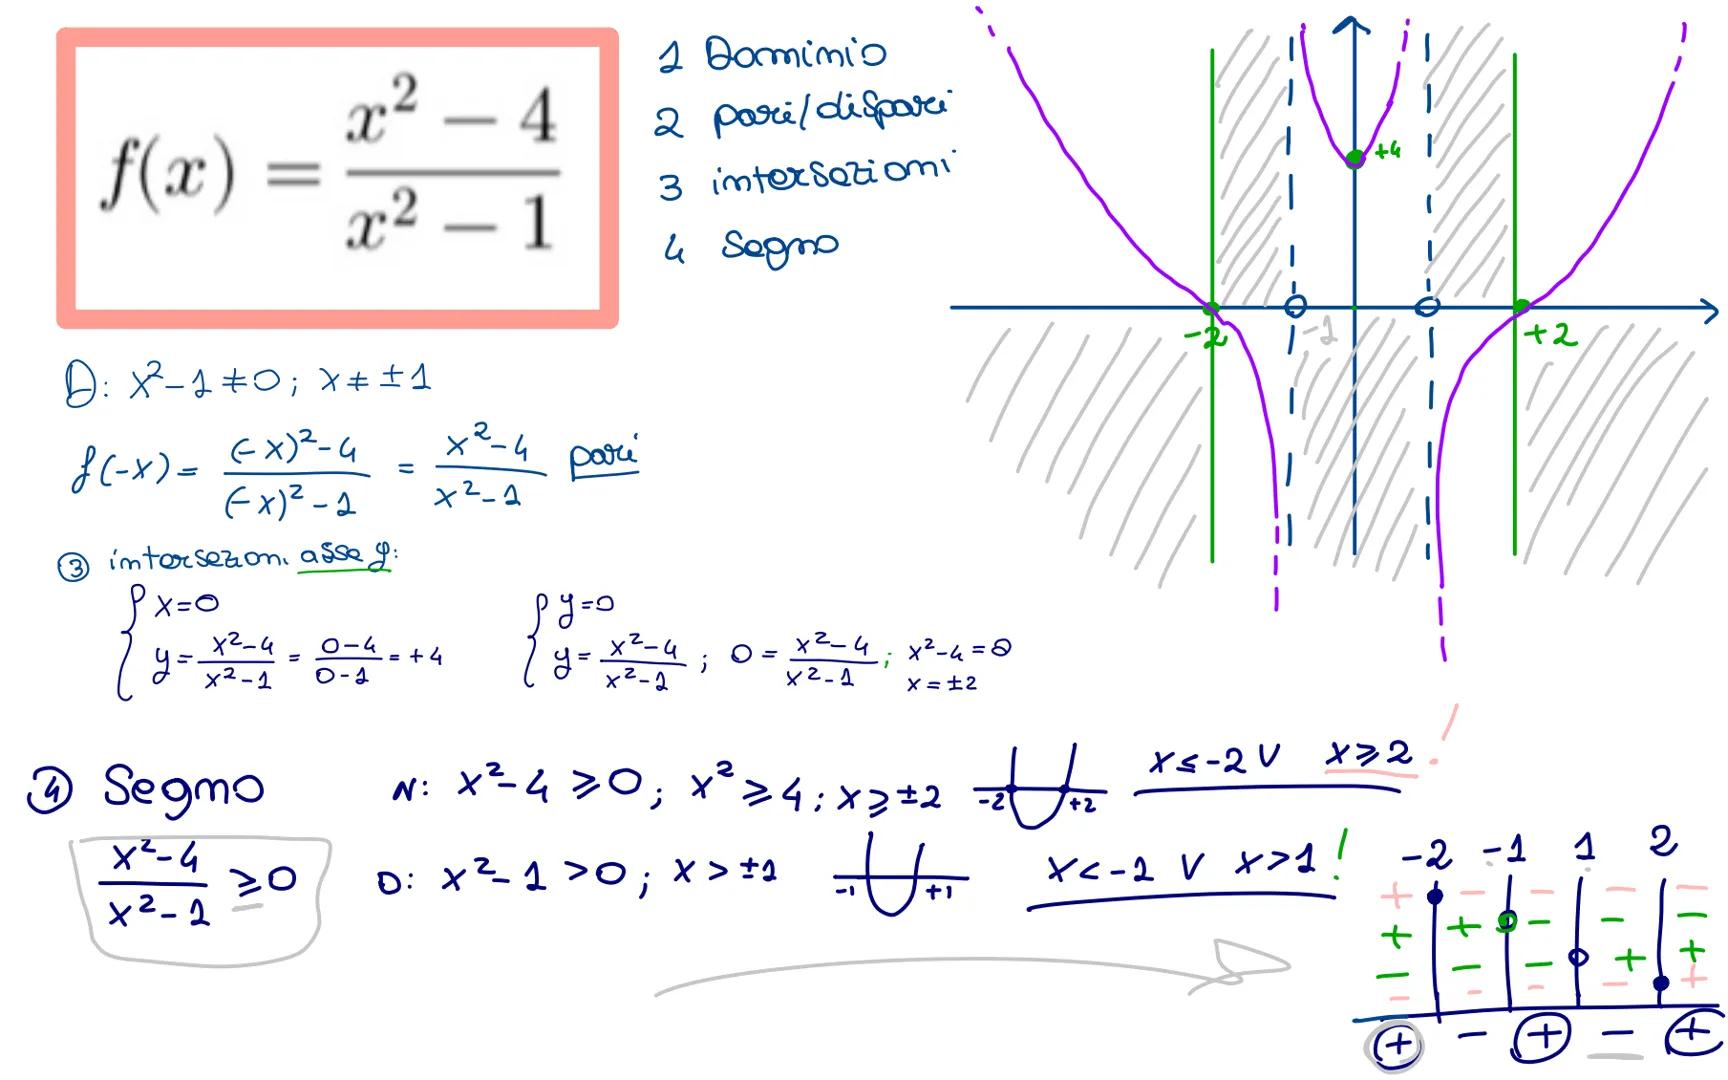 f(x) = (x² − 4)/(x² − 1)
1 Dominio
2 pari/dispari
3 intersezioni
4 Segno
+4
-2 -1 +2
D: x²-1≠0; x≠±1
f(-x) = ((-x)²-4)/((-x)²-1) = (x²-4)/(x²-1) pari
③ intersezioni asse y:
{ x=0
y = (x²-4)/(x²-1) = (0-4)/(0-1) = +4
{ y=0
y = (x²-4)/(x²-1) ; 0 = (x²-4)/(x²-1) ; x²-4=0
x=±2
④ Segno N: x²-4 ⩾0; x²⩾4; x⩾±2 -2 +2 x≤-2 V x⩾2 !
(x²-4)/(x²-1) ⩾0 D: x²-1>0; x>±1 -1 +1 x<-1 V x>1 !
-2 -1 1 2
+ - - - -
+ + - - -
- - - + +
- - - - +
+ - + - +